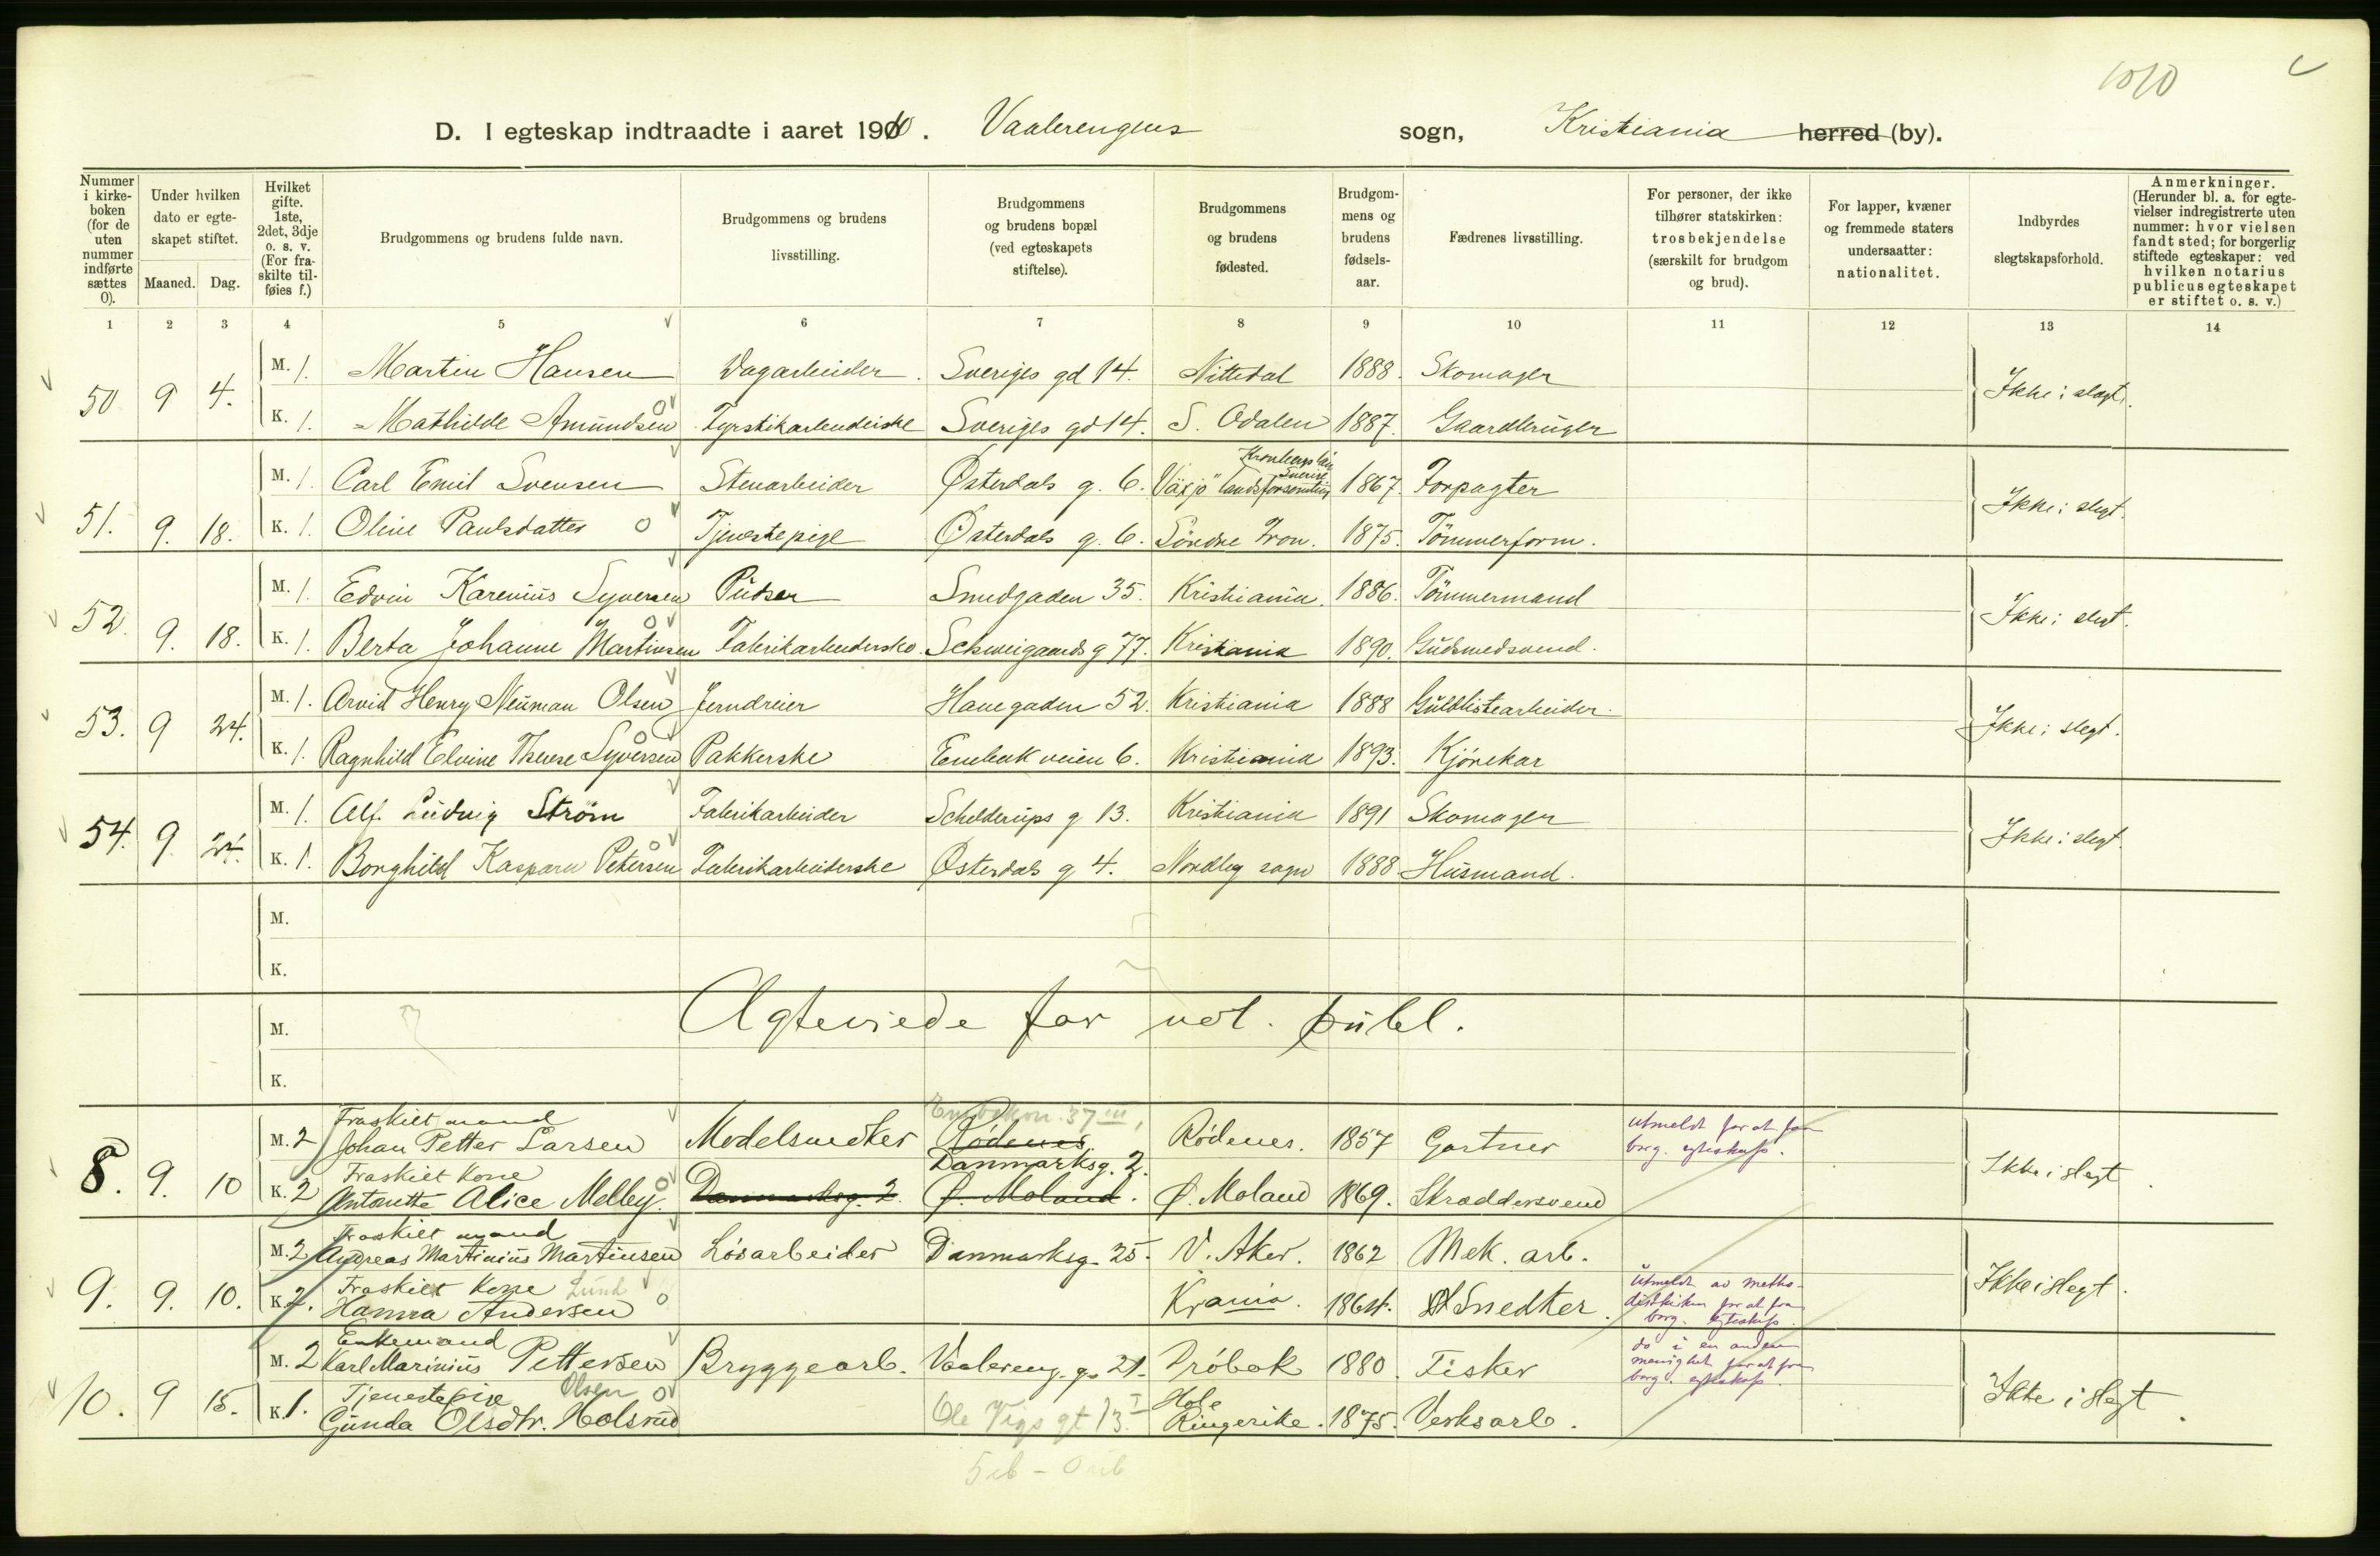 1010
D. I egteskap indtraadte i aaret 1910. Vaalerengens sogn, Kristiania herred (by).
Nummer i kirkeboken (for de uten nummer indførte sættes 0).
Under hvilken dato er egteskapet stiftet.
Maaned. Dag.
Hvilket gifte. 1ste, 2det, 3dje o. s. v. (For fraskilte tilføies f.)
Brudgommens og brudens fulde navn.
Brudgommens og brudens livsstilling.
Brudgommens og brudens bopæl (ved egteskapets stiftelse).
Brudgommens og brudens fødested.
Brudgommens og brudens fødselsaar.
Fædrenes livsstilling.
For personer, der ikke tilhører statskirken: trosbekjendelse (særskilt for brudgom og brud).
For lapper, kvæner og fremmede staters undersaatter: nationalitet.
Indbyrdes slegtskapsforhold.
Anmerkninger. (Herunder bl. a. for egtevielser indregistrerte uten nummer: hvor vielsen fandt sted; for borgerlig stiftede egteskaper: ved hvilken notarius publicus egteskapet er stiftet o. s. v.)
1 2 3 4 5 6 7 8 9 10 11 12 13 14
50 9 4. M. 1. Martin Hansen Dagarbeider. Sveriges gd 14. Nittedal 1888. Skomager Ikke i slegt.
K. 1. Mathilde Amundsen Fyrstikarbeiderske Sveriges gd 14. S. Odalen 1887. Gaardbruger
51. 9. 18. M. 1. Carl Emil Svensen Stenarbeider Østerdals g. 6. Växjö landsforsamling Kronbergs län Sverige 1867. Forpagter Ikke i slegt.
K. 1. Oline Paulsdatter Tjenestepige Østerdals g. 6. Søndre Fron. 1875. Tømmerform.
52. 9. 18. M. 1. Edvin Karenius Syversen Pudser Smedgaden 35. Kristiania. 1886. Tømmermand Ikke i slegt.
K. 1. Berta Johanne Martinsen Fabrikarbeiderske. Schweigaards g 77. Kristiania 1890. Guldsmedsvend.
53. 9 24. M. 1. Arvid Henry Neuman Olsen Jerndreier Havegaden 52. Kristiania 1888 Guldlistearbeider. Ikke i slegt.
K. 1. Ragnhild Elvine Therese Syversen Pakkerske Enebak veien 6. Kristiania 1893. Kjørekar
54. 9. 24. M. 1. Alf Ludvig Strøm Fabrikarbeider Schelderups g 13. Kristiania 1891 Skomager Ikke i slegt.
K. 1. Borghild Kaspara Petersen Fabrikarbeiderske Østerdals g 4. Nordby sogn 1888. Husmand.
M.
K.
M. Ægteviede for not. publ.
K.
Fraskilt mand Enebakvn. 37 III,
8. 9. 10 M. 2 Johan Petter Larsen Modelsnedker Rødenes. Rødenes. 1857 Gartner Utmeldt for at faa borg. egteskap. Ikke i slegt.
Fraskilt kone Danmarksg. 2.
K. 2 Antonette Alice Melby. Danmarksg. 2. Ø. Moland. Ø. Moland 1869. Skræddersvend
Fraskilt mand
9. 9. 10. M. 2 Andreas Martinius Martinsen Løsarbeider Danmarksg. 25. V. Aker. 1862 Mek. arb. Ikke i slegt.
Fraskilt kone Lund
K. 2. Hanna Andersen Krania. 1864. Snedker. Utmeldt av methodistkirken for at faa borg. egteskap.
Enkemand
10. 9 15. M. 2 Karl Marinius Pettersen Bryggearb. Vaalereng. g. 21. Drøbak 1880. Fisker do i en anden menighet for at faa borg. egteskap. Ikke i slegt.
Tjenestepige Olsen Hole
K. 1. Gunda Olsdtr. Holsrud Ole Vigs gt 13. I Ringerike. 1875. Verksarb.